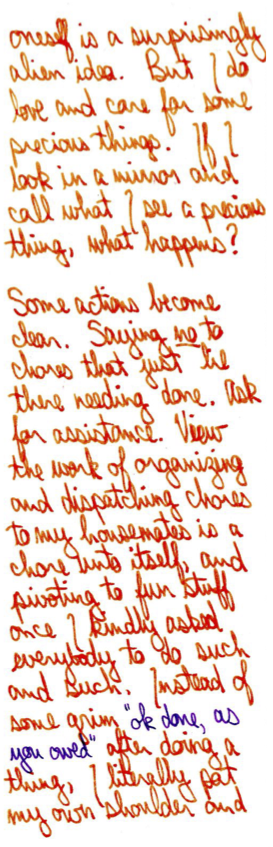 oneself is a surprisingly
alien idea. But I do
love and care for some
precious things. If I
look in a mirror and
call what I see a precious
thing, what happens?
Some actions become
clear. Saying no to
chores that just lie
there needing done. Ask
for assistance. View
the work of organizing
and dispatching chores
to my housemates is a
chore unto itself, and
pivoting to fun stuff
once I kindly asked
everybody to do such
and such. Instead of
some grim "ok done, as
you owed" after doing a
thing, I literally pat
my own shoulder and